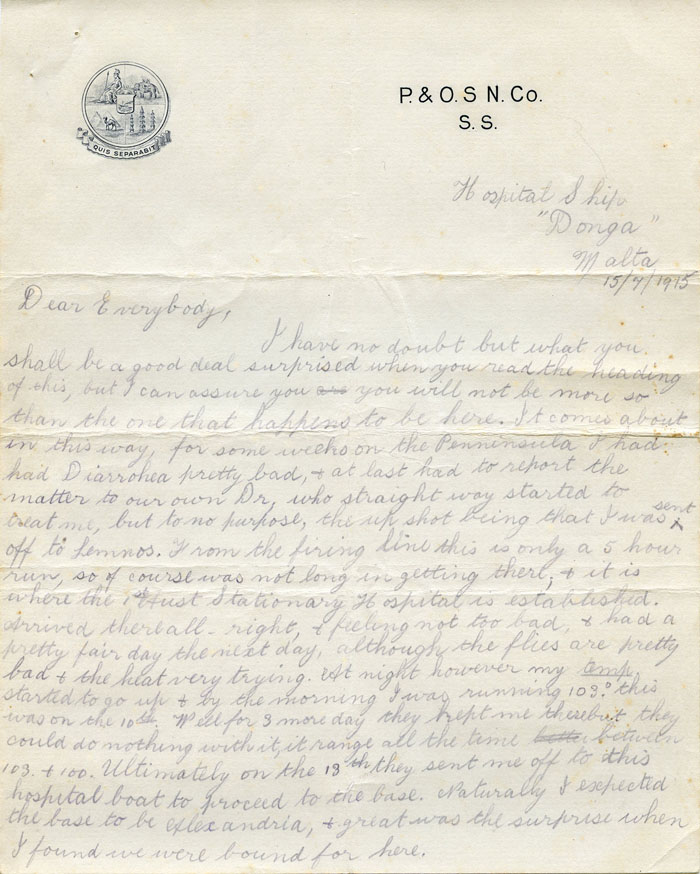 QUIS SEPARABIT
P. & O. S N. Co.
S. S.
Hospital Ship
"Donga"
Malta
15/7/1915
Dear Everybody,
I have no doubt but what you
shall be a good deal surprised when you read the heading
of this, but I can assure you are you will not be more so
than the one that happens to be here. It comes about
in this way, for some weeks on the Penninsula I had
had Diarrohea pretty bad, & at last had to report the
matter to our own Dr, who straight way started to
treat me, but to no purpose, the up shot being that I was sent
off to Lemnos. From the firing line this is only a 5 hour
run, so of course was not long in getting there, & it is
where the 1st Aust Stationary Hospital is established.
Arrived there all-right, & feeling not too bad, & had a
pretty fair day the next day, although the flies are pretty
bad & the heat very trying. At night however my temp
started to go up & by the morning I was running 103° this
was on the 10th. Well for 3 more day they kept me there but they
could do nothing with it, it range all the time between
103. & 100. Ultimately on the 13th they sent me off to this
hospital boat to proceed to the base. Naturally I expected
the base to be Alexandria, & great was the surprise when
I found we were bound for here.